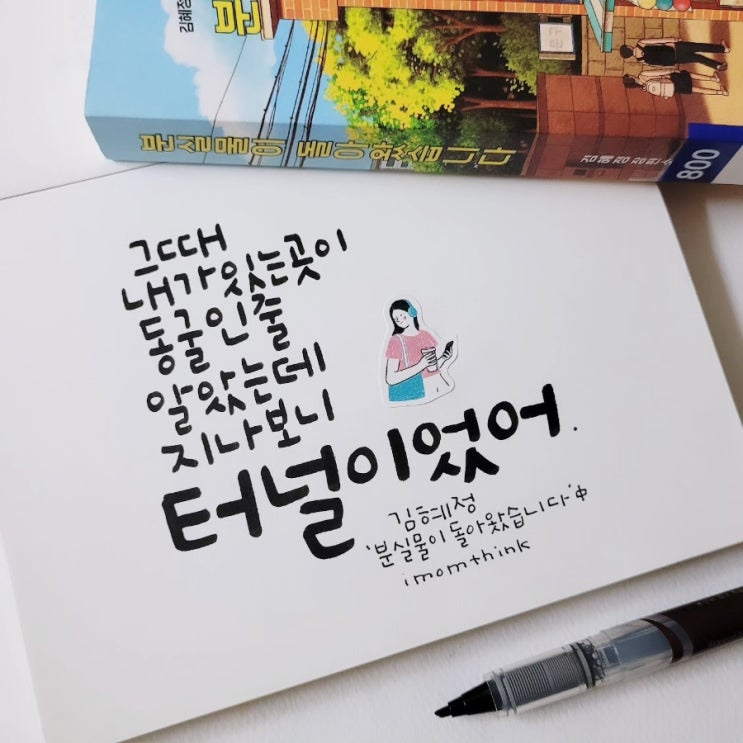 김혜정
분
분실물이 돌아왔습니다
김혜정 장편소
800
그때
내가있는곳이
동굴인줄
알았는데
지나보니
터널이었어.
김혜정
'분실물이돌아왔습니다'中
imomthink